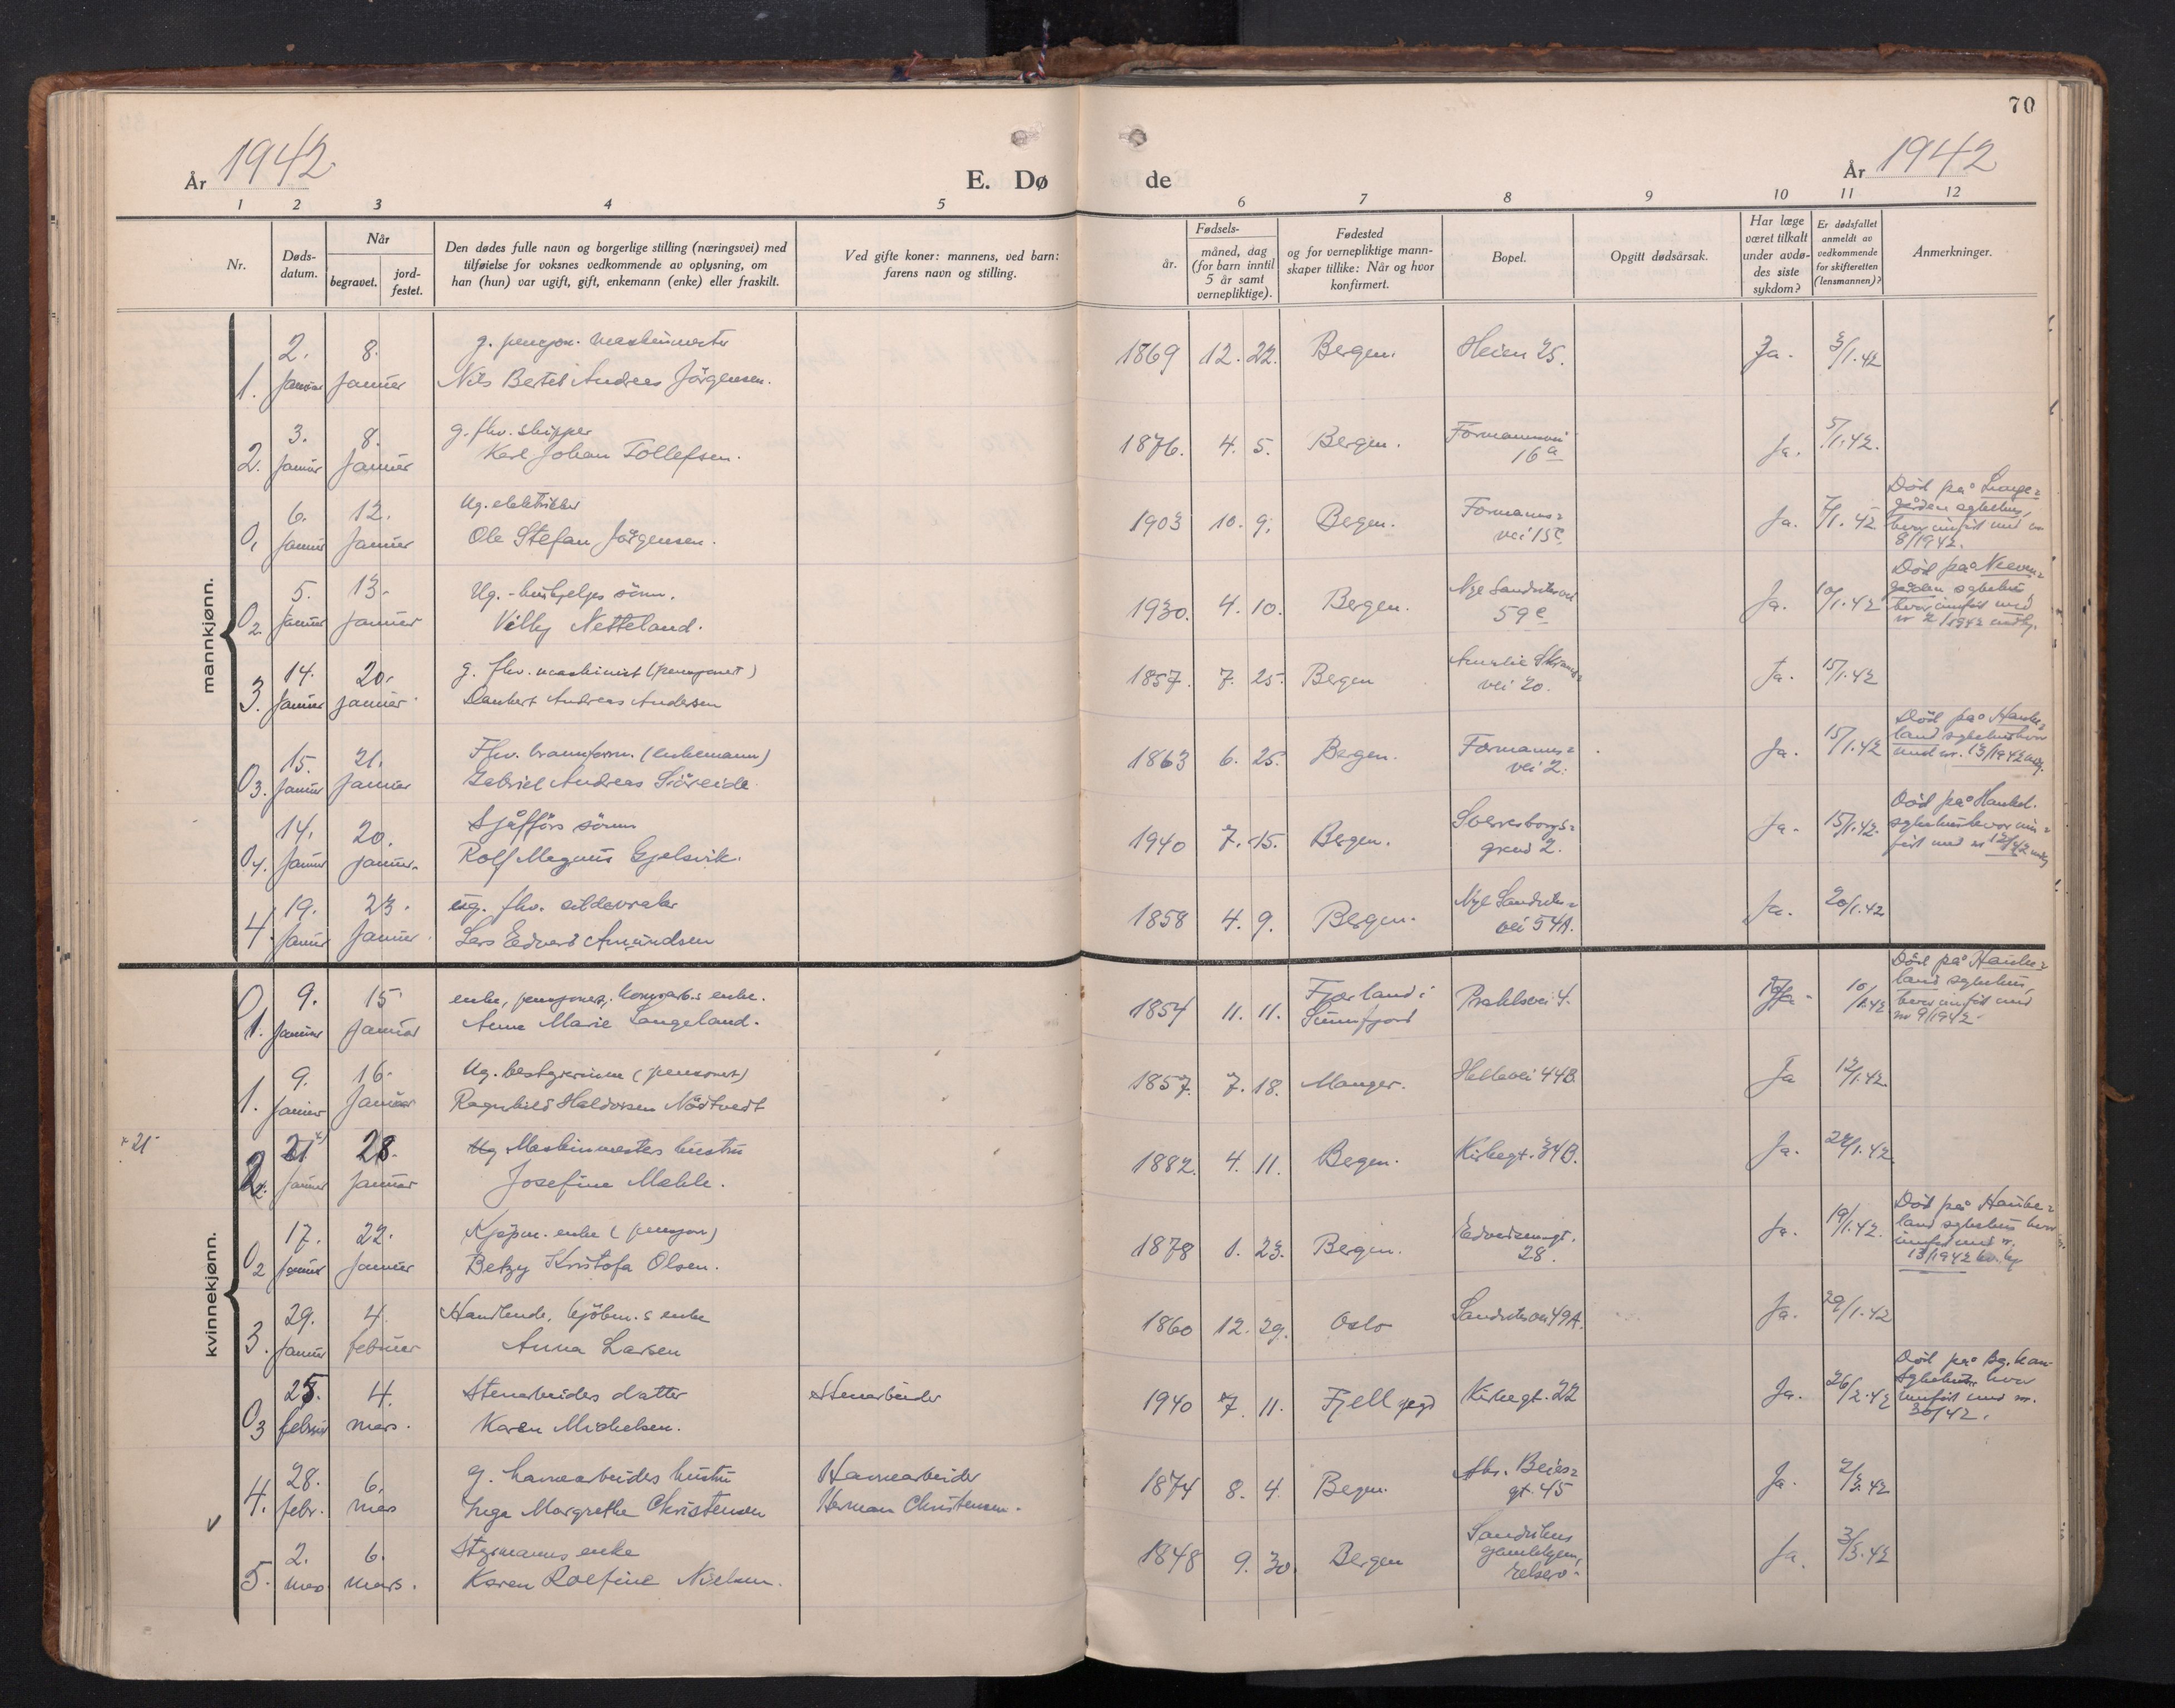 70
År 1942
E. Dø
de
År 1942
1 2 3 4 5
6 7 8 9 10 11 12
Nr.
Døds-
datum.
Når
begravet.
jord-
festet.
Den dødes fulle navn og borgerlige stilling (næringsvei) med
tilføielse for voksnes vedkommende av oplysning, om
han (hun) var ugift, gift, enkemann (enke) eller fraskilt.
Ved gifte koner: mannens, ved barn:
farens navn og stilling.
Fødsels-
år.
måned, dag
(for barn inntil
5 år samt
vernepliktige).
Fødested
og for vernepliktige mann-
skaper tillike: Når og hvor
konfirmert.
Bopel.
Opgitt dødsårsak.
Har læge
været tilkalt
under avdø-
des siste
sykdom?
Er dødsfallet
anmeldt av
vedkommende
for skifteretten
(lensmannen)?
Anmerkninger.
mannkjønn.
2. 8. g. pensjon. maskinmester
1. Januar Januar Nils Bertel Andreas Jörgensen.
1869 12. 22. Bergen. Heien 25. Ja. 3/1.42
3. 8. g. fhv. skipper
2. Januar Januar Karl Johan Tollefsen.
1876. 4. 5. Bergen. Formannsvei
16a Ja. 5/1.42.
6. 12. Ug. elektriker
0, Januar Januar Ole Stefan Jörgensen.
1903 10. 9. Bergen. Formanns=
vei 15c Ja. 7/1.42
Död på Lunge=
gården sykehus,
hvor innfört med nr
8/1942.
5. 13. Ug. - hushjelps sönn.
02. Januar Januar Villy Netteland.
1930. 4. 10. Bergen. Nye Sandviksvei
59c Ja. 10/1.42
Död på Neeven=
gården sykehus
hvor innfört med
nr 2/1942
14. 20. g. fhv. maskinist (pensjonert)
3. Januar januar Dankert Andreas Andersen
1857. 7. 25. Bergen Amalie Skrams=
vei 20. Ja. 15/1.42
15. 21. Fhv. brannform. (enkemann)
03. Januar Januar Gabriel Andreas Söreide
1863 6. 25. Bergen. Formanns=
vei 2. Ja. 15/1.42
Död på Hauke=
land sykehus hvor
med nr. 13/1942
14. 20. Sjåförs sönn
04. Januar januar. Rolf Magnus Gjelsvik.
1940 7. 15. Bergen. Sverresborgs=
grend 2. Ja. 15/1.42.
Död på Haukel.
sykehus hvor inn=
fört med nr 12/42
19. 23. ug. fhv. sildevraker
4. Januar Januar. Lars Edvard Amundsen
1858 4. 9. Bergen. Nye Sandviks=
vei 54A. Ja. 20/1.42
kvinnekjønn.
9. 15 enke, enke.
01. Januar Januar Anne Marie Langeland.
1854 11. 11. Fjærland i
Sunnfjord Prahlsvei 4. Ja. 10/1.42
Död på Hauke=
land sykehus,
hvor innfört med
nr 9/1942
9. 16. Ug. bestyrerinne (pensionert)
1. Januar Januar Ragnhild Haldorsen Nödtvedt
1857. 7. 18. Manger. Hellevei 44B. Ja 12/1.42.
* 21
21 *) 28. Ug Maskinmesters hustru
2. Januar Januar Josefine Mehle.
1882. 4. 11. Bergen. Kirkegt. 34B. Ja. 24/1.42.
17. 22. Kjöpm. enke (pensjon)
02 Januar Januar Betzy Kristofa Olsen.
1878 1. 23. Bergen. Edvardsensgt.
28. Ja. 19/1.42.
Död på Hauke=
land sykehus hvor
innfört med nr.
13/1942
29. 4. Handlende, kjöbm.s enke
3. Januar februar Anna Larsen
1860 12. 29. Oslo Sandviksvei 49A. Ja. 29/1.42
25. 4. Stenarbeiders datter Stenarbeider
03 februar mars. Karen Michelsen.
1940 7. 11. Fjell Kirkegt. 22 Ja. 26/2.42
Död på Bg. kom.
Sykehus hvor
innfört med nr.
30/42.
28. 6. g. havnearbeiders hustru Havnearbeider
4. febr. mars Inga Margrethe Christensen Herman Christensen.
1874 8. 4. Bergen. Abs. Beies=
gt. 45 Ja. 2/3.42
v
2. 6. Styrmanns enke
5. mars mars. Karen Rolfine Nielsen.
1848 9. 30 Bergen Sandvikens
gamlehjem,
Ja. 3/3.42